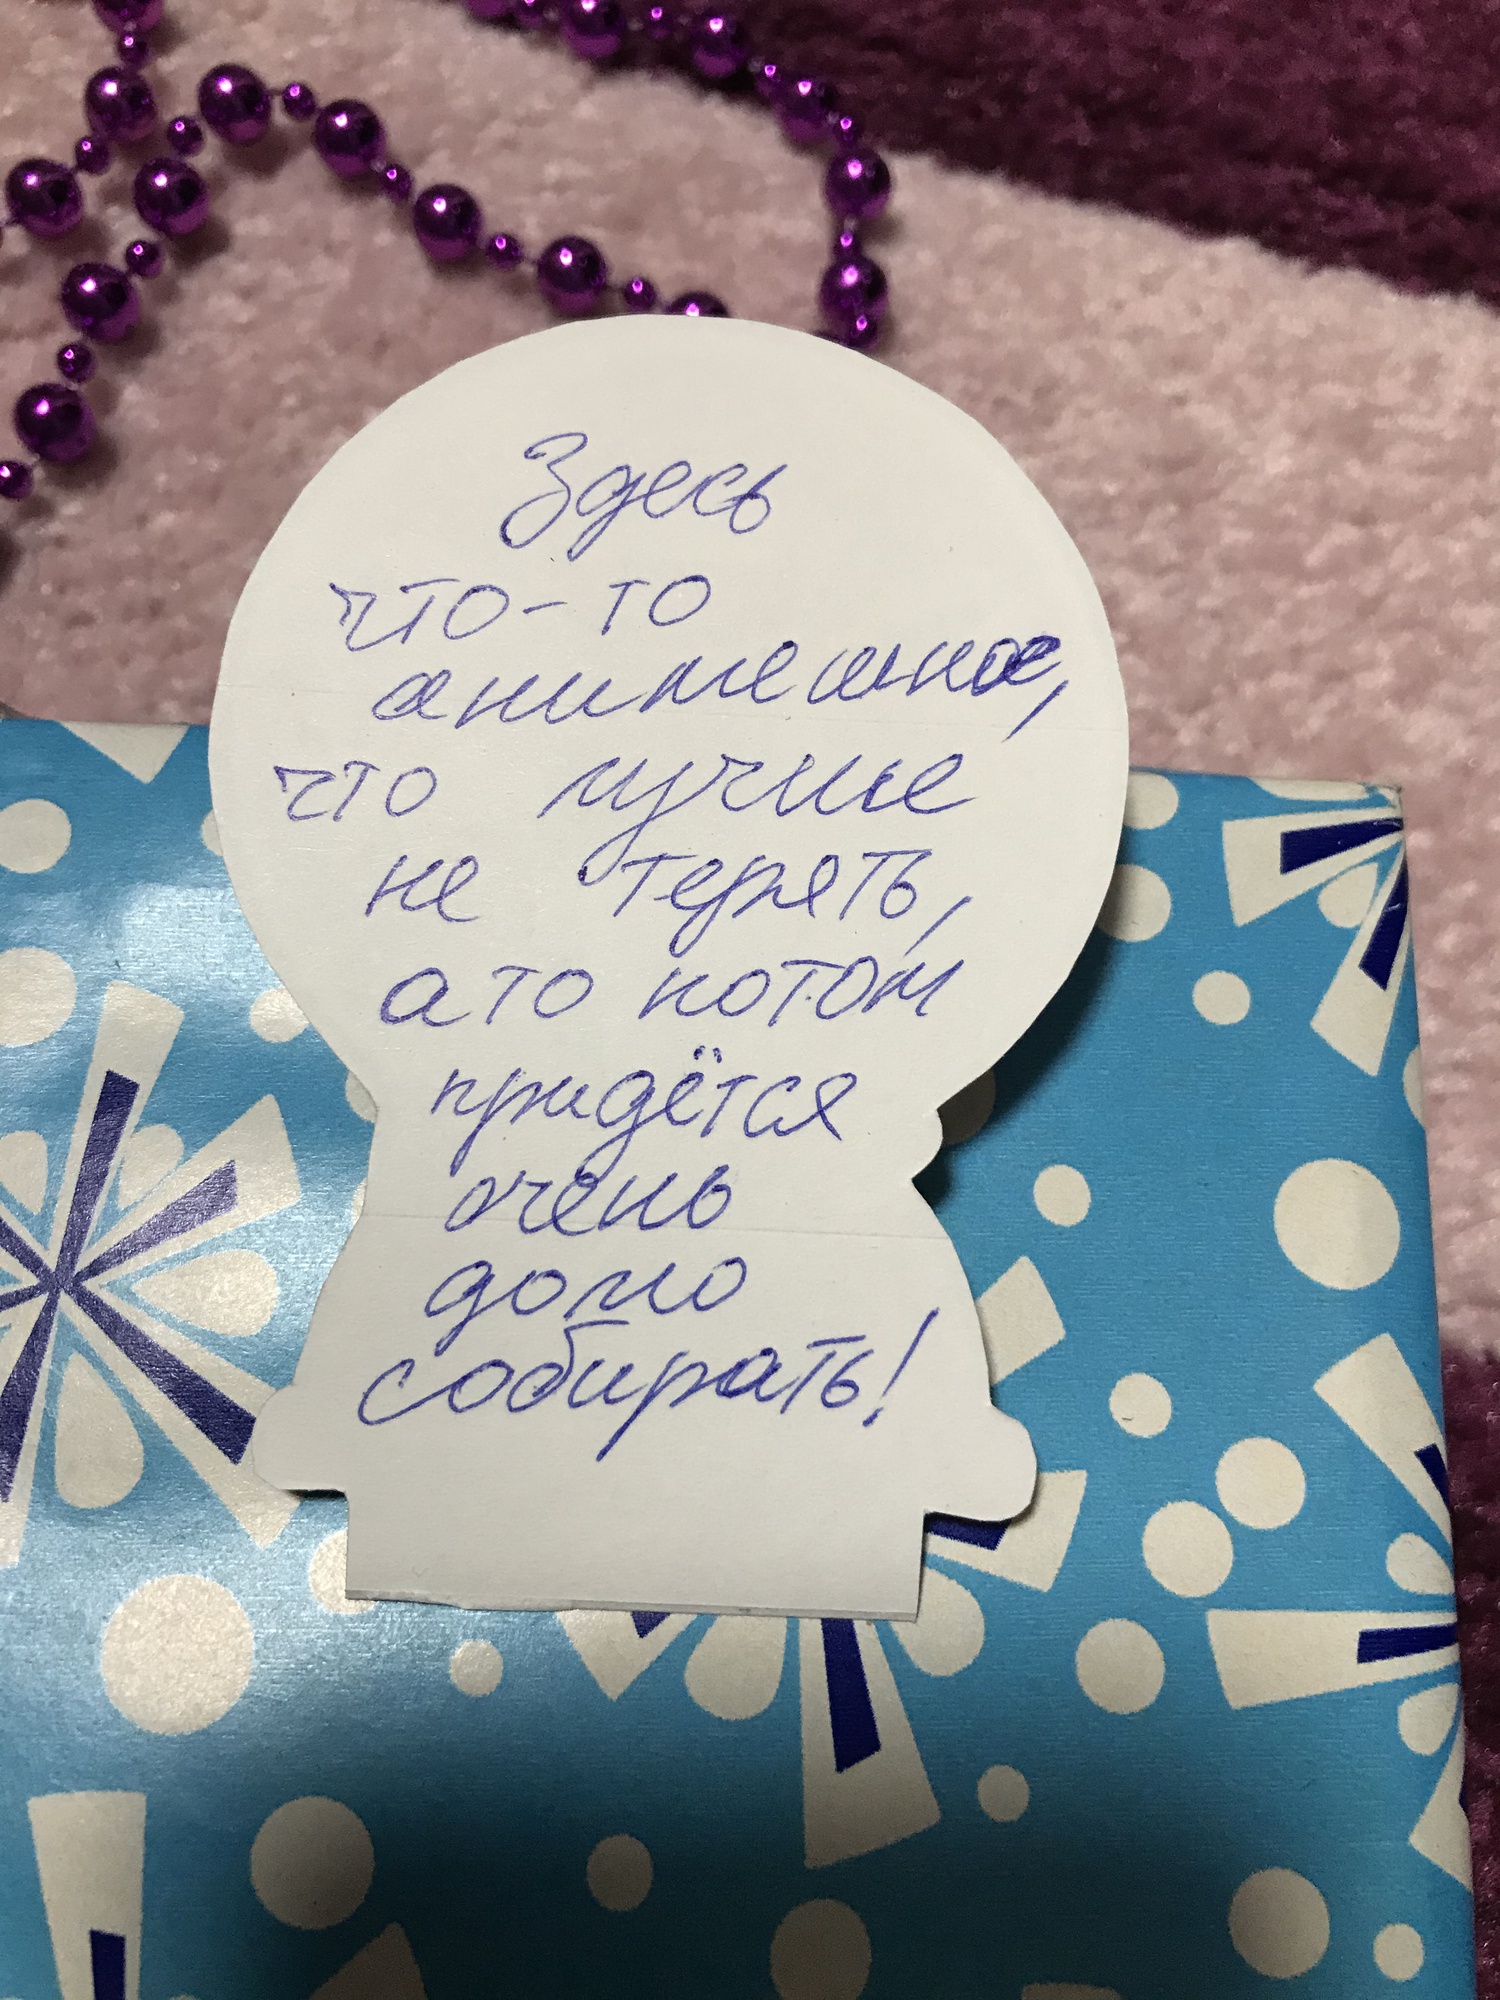 Здесь
что-то
анимешное,
что лучше
не терять,
а то потом
придётся
очень
долго
собирать!